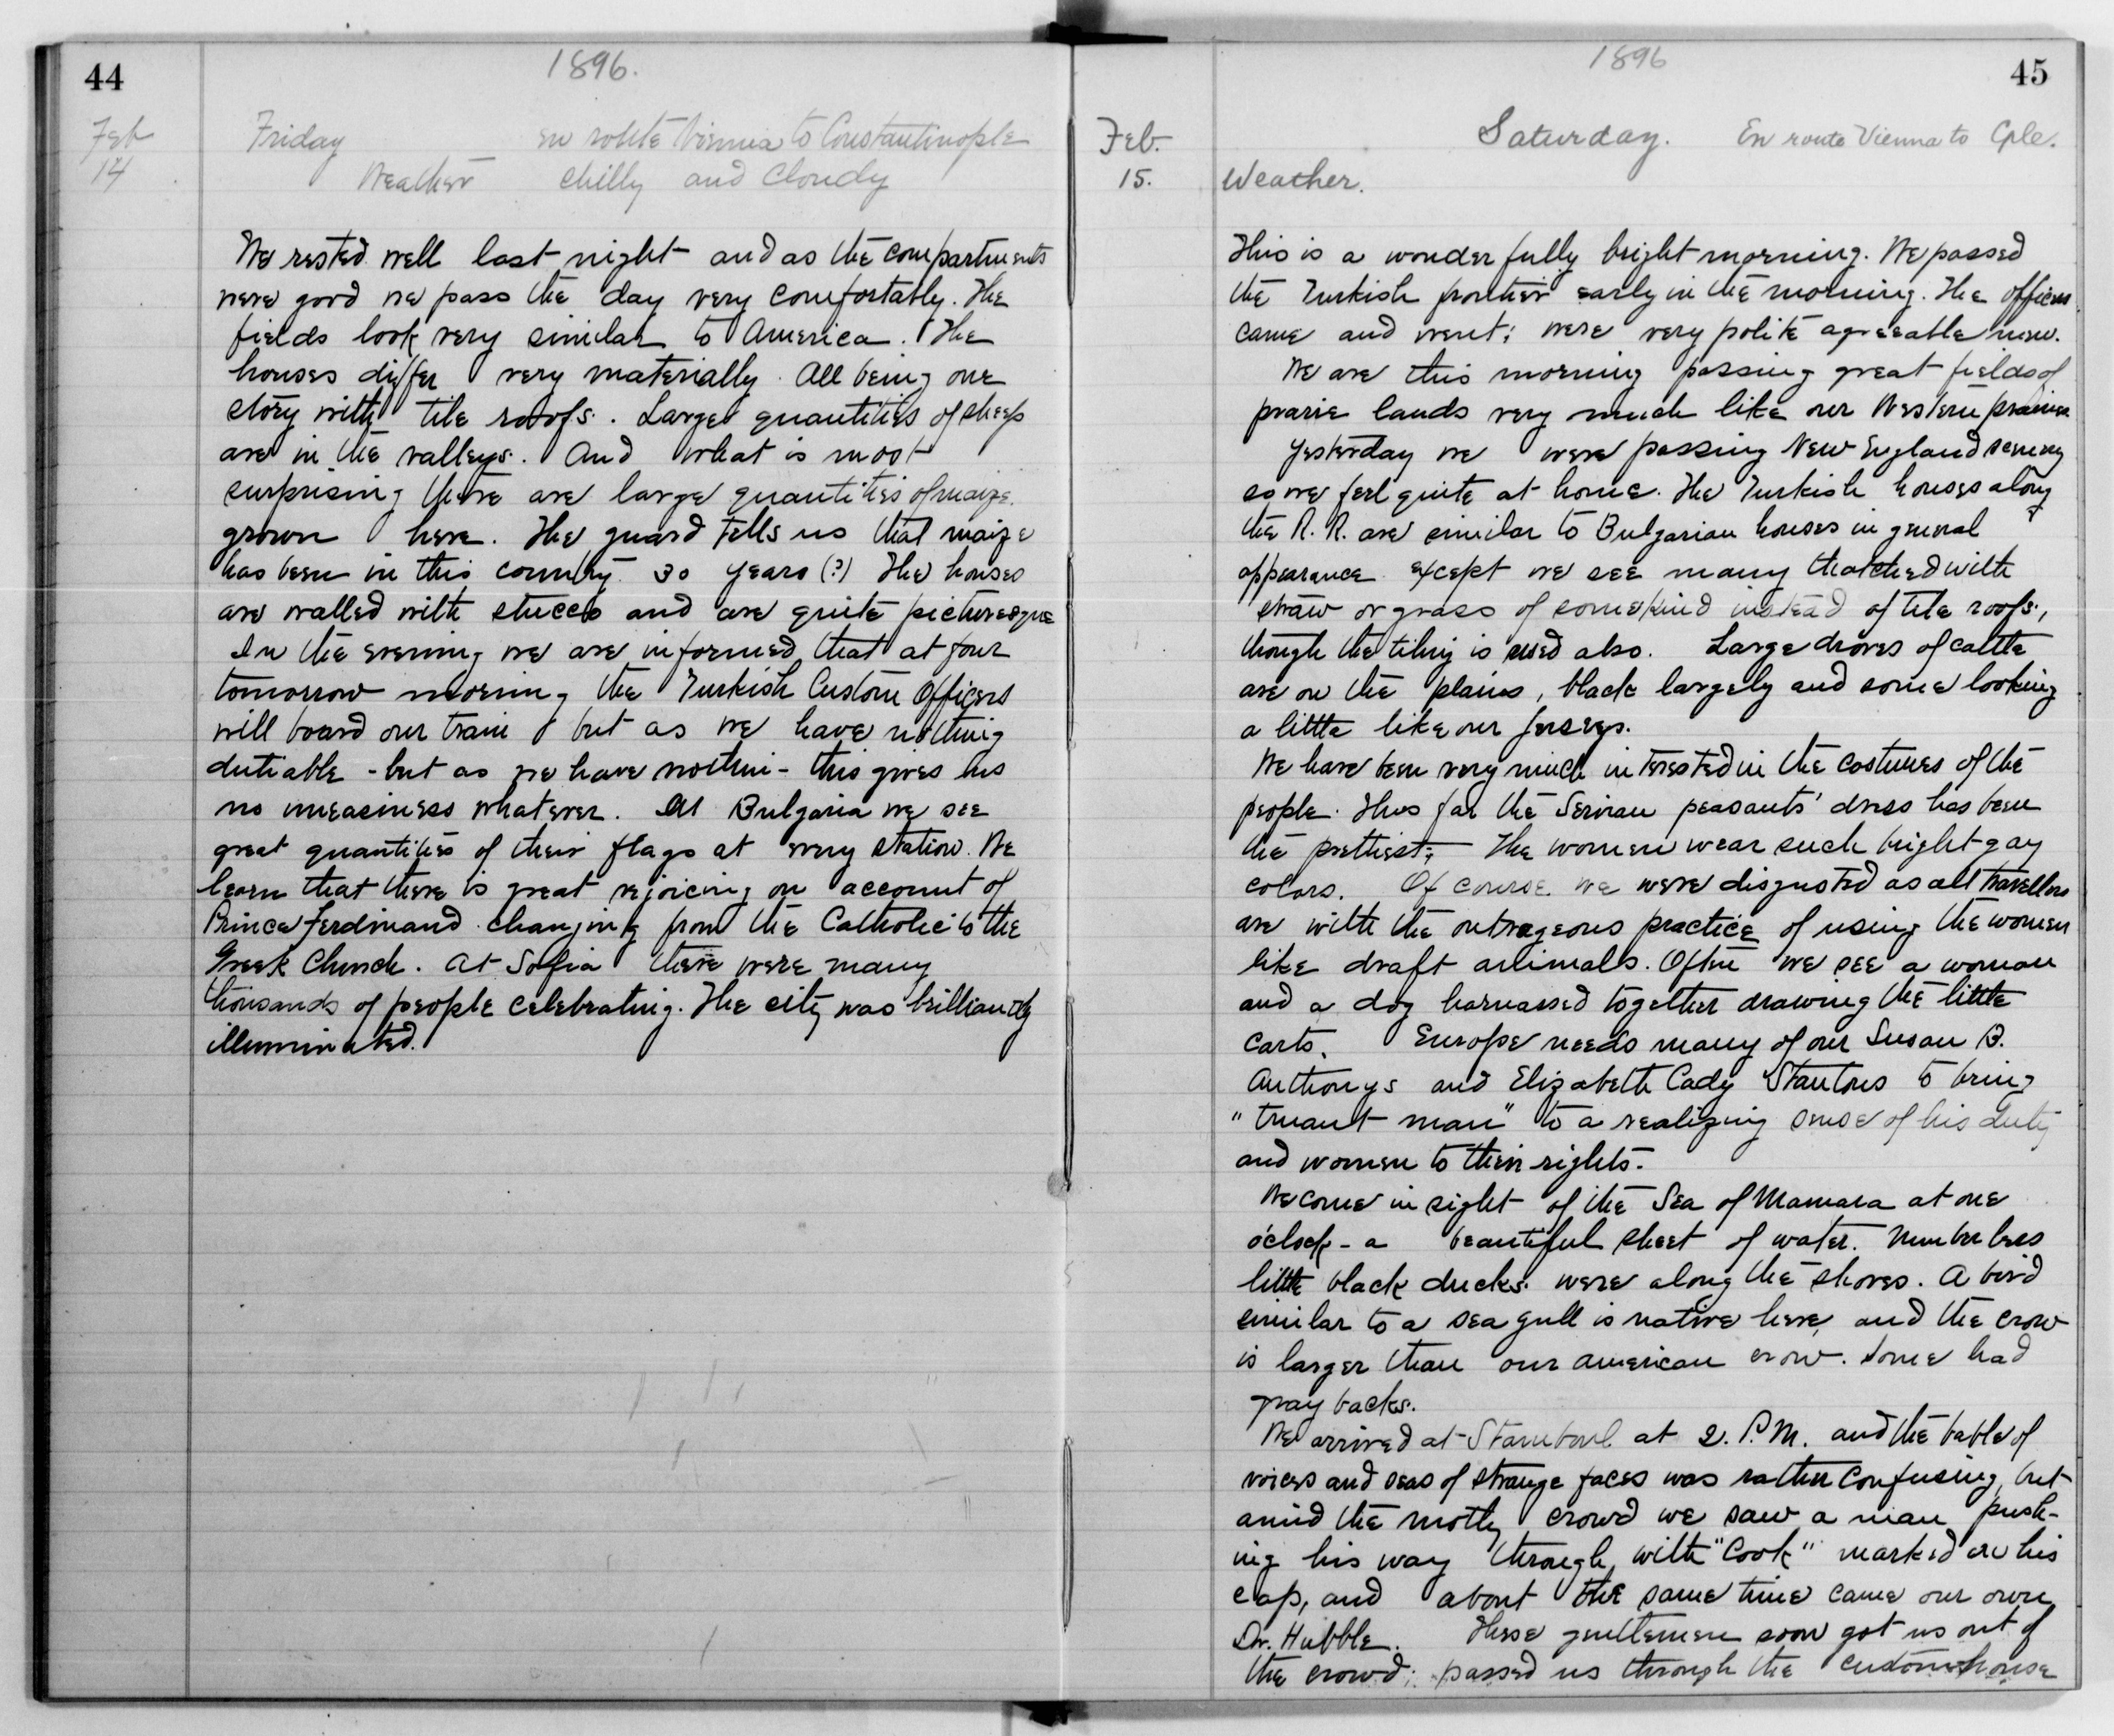 44
1896.
Feb
14
Friday en route Vienna to Constantinople
Weather chilly and Cloudy
We rested well last night and as the compartments
were good we pass the day very comfortably. The
fields look very similar to America. The
houses differ very materially. All being one
story with tile roofs. Large quantities of sheep
are in the valleys. And what is most
surprising there are large quantities of maize
grown here. The guard tells us that maize
has been in this country 30 years (?) The houses
are walled with stucco and are quite picturesque
In the evening we are informed that at four
tomorrow morning the Turkish Custom Officers
will board our train but as we have nothing
dutiable - but as we have nothin - this gives us
no uneasiness whatever. At Bulgaria we see
great quantities of their flags at every station. We
learn that there is great rejoicing on account of
Prince Ferdinand changing from the Catholic to the
Greek Church. At Sofia there were many
thousands of people celebrating. The city was brilliantly
illuminated.
1896
45
Feb.
15.
Saturday. En route Vienna to Cple.
Weather.
This is a wonderfully bright morning. We passed
the Turkish frontier early in the morning. The officers
came and went; were very polite agreeable men.
We are this morning passing great fields of
prarie lands very much like our Western prairies
Yesterday we were passing New England scenery
so we feel quite at home. The Turkish houses along
the R. R. are similar to Bulgarian houses in general
appearance except we see many thatched with
straw or grass of some kind instead of tile roofs,
though the tiling is used also. Large droves of cattle
are on the plains, black largely and some looking
a little like our Jerseys.
We have been very much interested in the costumes of the
people. Thus far the Servian peasants' dress has been
the prettiest; The women wear such bright gay
colors. Of course we were disgusted as all travellers
are with the outrageous practice of using the women
like draft animals. Often we see a woman
and a dog harnassed together drawing the little
carts. Europe needs many of our Susan B.
Anthonys and Elizabeth Cady Stantons to bring
"truant man" to a realizing sense of his duty
and women to their rights.
We come in sight of the Sea of Mamara at one
o'clock - a beautiful sheet of water. Numberless
little black ducks were along the shores. A bird
similar to a sea gull is native here, and the crow
is larger than our american crow. Some had
gray backs.
We arrived at Stamboul at 2. P.M. and the bable of
voices and seas of strange faces was rather confusing, but
amid the motly crowd we saw a man push-
ing his way through, with "Cook" marked on his
cap, and about the same time came our own
Dr. Hubble. These gentlemen soon got us out of
the crowd; passed us through the customhouse